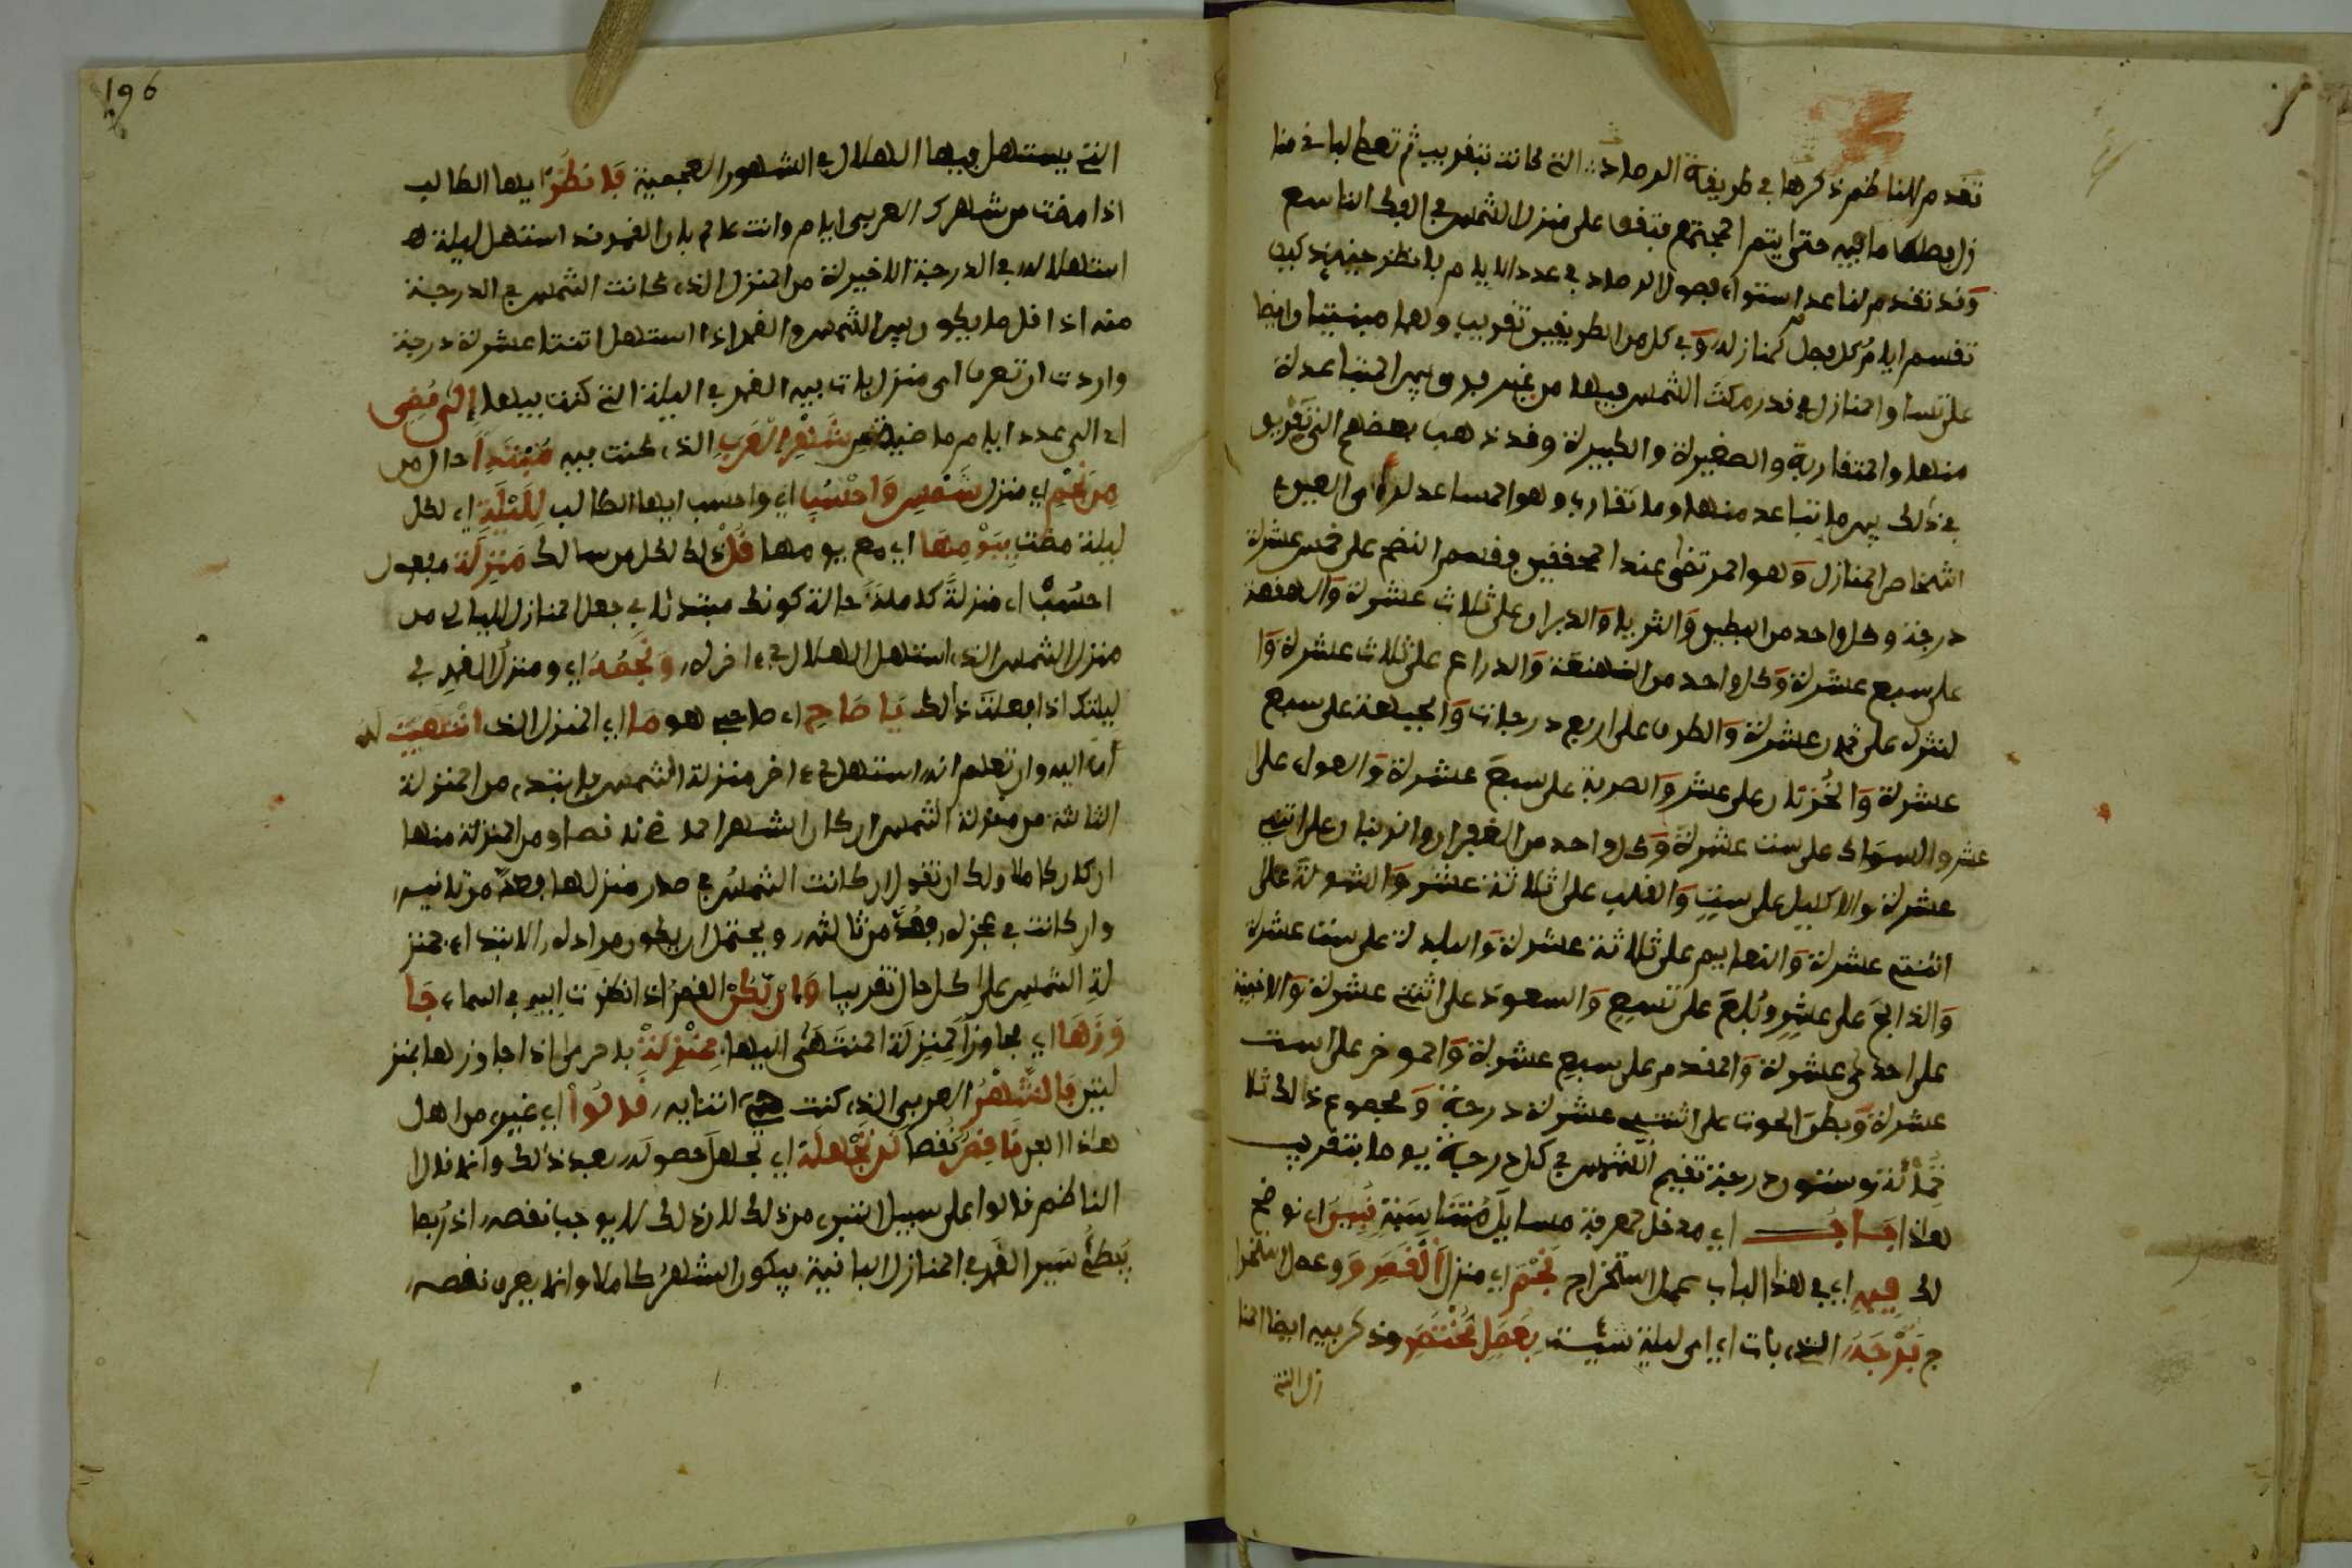 تقدم للناظم ذكرها في طريقة الرصاد التي كانت بتقريب ثم تعط لباقي منا
زل بطها ما فيه حتى يتم المجتمع فتقف على منزل الشمس في اليوم التاسع
وقد تقدم لنا عد استواء فصول الرصاد في عدد الايام فانظر حينئذ كيف
تقسم ايام كل فصل كمنازله وفي كل من الطريقين تقريب ولهما مبنيتا وايضا
على تساو المنازل في قدر مكث الشمس فيها من غير فرق بين المتباعدة
منها والمتقاربة والصغيرة والكبيرة وقد ذهب بعضهم الى تفريق
في ذلك بين ما تباعد منها وما تقارب وهو المساعد لرءى العين
اشخاص المنازل وهو المرتضى عند المحققين وقسم النضح على خمس عشرة
درجة وكل واحد من البطين والثريا والدبران على ثلاث عشرة والهقعة
على سبع عشرة وكل واحد من الهنعة والذراع على ثلاث عشرة وا
لنثرة على ثمان عشرة والطرف على اربع درجات والجبهة على سبع
عشرة والخرتان على عشر والصرفة على سبع عشرة والعواء على
عشر والسماك على ست عشرة وكل واحد من الغفر والزبنان على اثنتي
عشرة والاكليل على ست والقلب على ثلاثة عشر والشولة على
اثنتي عشرة والنعايم على ثلاثة عشرة والبلدة على ست عشرة
والذابح على عشر وبلع على تسع والسعود على اثنتي عشرة والاخبية
على احدى عشرة والمقدم على سبع عشرة والموخر على ست
عشرة وبطن الحوت على اثنتي عشرة درجة ومجموع ذالك ثلا
ثمائة وستون درجة تقيم الشمس في كل درجة يوما بتقريب
هاذا باب اي مدخل لمعرفة مسايل متناسبة نبين اي نوضح
لك فيه اي في هذا الباب عمل استخراج نجم اي منزل القمر وعمل استخرا
ج برجه الذي بات اي اي ليلة شيئت بعمل مختصر وذكر فيه ايضا المنا
زل التي
196
التي يستهل فيها الهلال في الشهور العجمية فانظر ايها الطالب
اذا مضت من شهرك العربي ايام وانت عالم بان القمر قد استهل ليلة
استهلاله في الدرجة الاخيرة من المنزل الذي كانت الشمس في الدرجة
منه اذ اقل ما يكون بين الشمس والقمر اذا استهل اثنتا عشرة درجة
واردت ان تعرف اي منزل بات فيه القمر في الليلة التي كنت فيها الى مضى
اي الى عدد ايام ماضية من شهر العرب الذي كنت فيه مبتدا حال من
من نجم اي منزل شمس واحسب اي واحسب ايها الطالب لليلة اي لكل
ليلة مضت بيومها اي مع يومها قل ذلك لكل من سالك منزلة مفعول
احسب اي منزلة كاملة حالة كونك مبتدئا في جعل المنازل لليالي من
منزل الشمس الذي استهل الهلال في ءاخره ونجمه اي ومنزل القمر في
ليلتك اذا فعلت ذالك يا صاح اي صاحبي هو ما اي المنزل الذي انتهيت له
اي اليه وان تعلم انه استهل في ءاخر منزلة الشمس فابتدء من المنزلة
الثالثة من منزلة الشمس ان كان الشهر الماضي ناقصا ومن المنزلة منها
ان كان كاملا ولك ان تقول ان كانت الشمس في صدر منزلها فعد من ثانيه
وان كانت في عجزه فعد من ثالثه ويحتمل ان يكون مراده الابتداء بمنز
لة الشمس على كل حال تقريبا وان يكن القمر اذا نظرت اليه في السماء جا
وزها اي مجاوزا لمنزلة المنتهى اليها بمنزلة فاحرى اذا جاوزها بمنز
لتين فالشهر العربي الذي كنت في اثنايه قالوا اي غيري من اهل
هاذا الفن ناقص نقصا لن تجهله اي تجهل حصوله بعد ذلك وانما قال
الناظم قالوا على سبيل التبرء من ذلك لان ذلك لا يوجب نقصه اذ ربما
يبطئ سير القمر في المنازل الباقية فيكون الشهر كاملا وانما يعرف نقصه